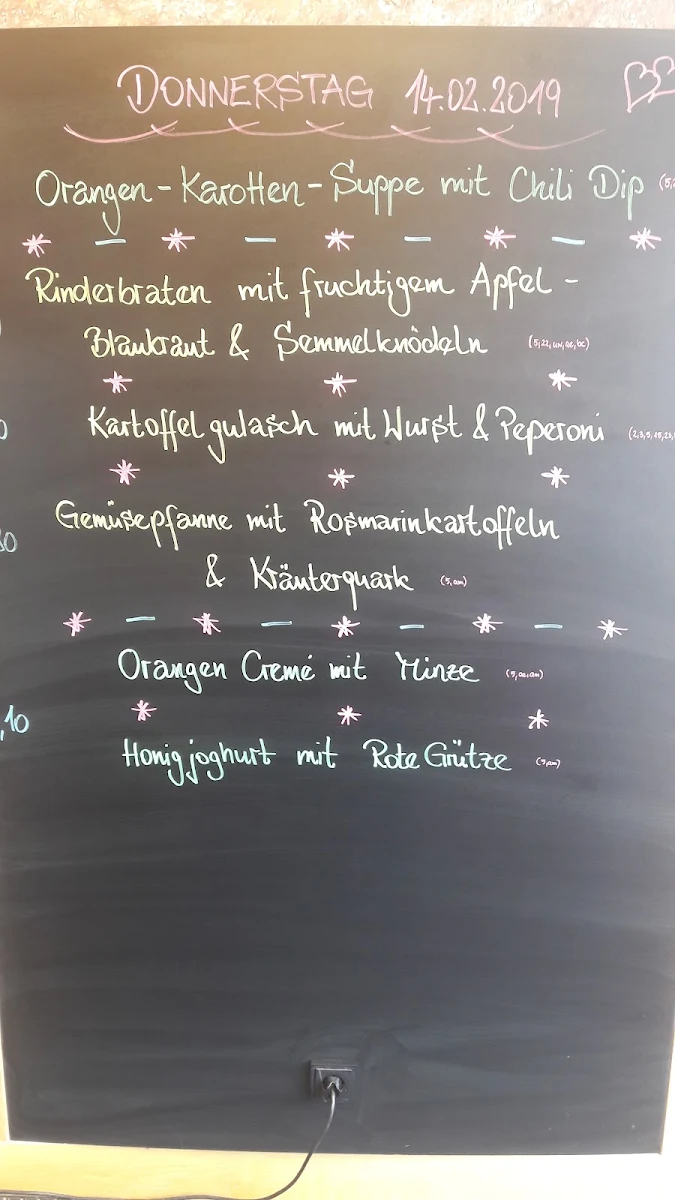 DONNERSTAG 14.02.2019
Orangen-Karotten-Suppe mit Chili Dip
Rinderbraten mit fruchtigem Apfel-
Blaukraut & Semmelknödeln
Kartoffelgulasch mit Wurst & Peperoni
Gemüsepfanne mit Rosmarinkartoffeln
& Kräuterquark (5,am)
,10
Orangen Cremé mit Minze
Honigjoghurt mit Rote Grütze